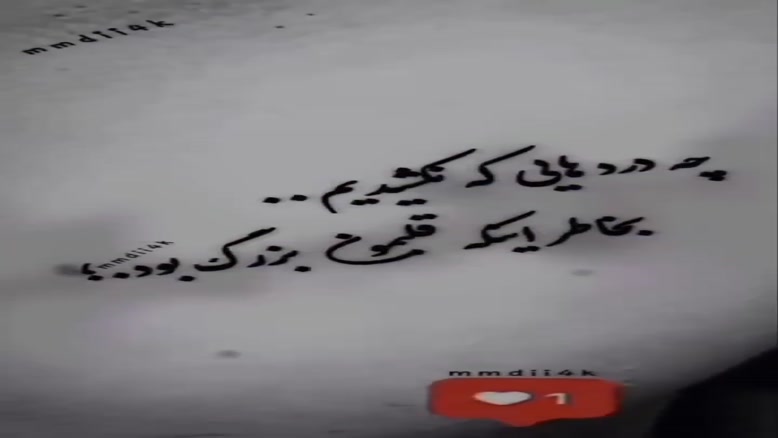 mmdii4k
چه درد هایی که نکشیدیم..
بخاطر اینکه قلبمون بزرگ بود..؛
mmdii4k
mmdii4k
1